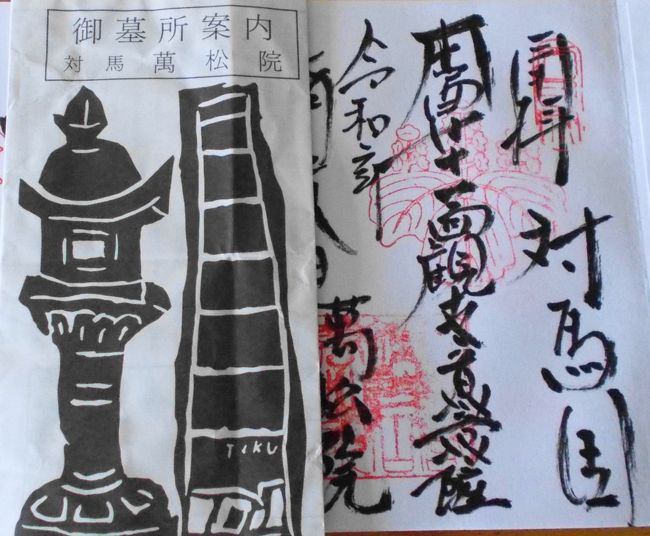 御墓所案内
対馬 萬松院
TIKU
拝 対馬国
十一面観世音菩薩
令和元年
日 萬松院